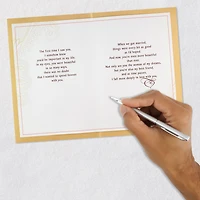 The first time I saw you,
I somehow knew
you'd be important in my life.
In my eyes, you were beautiful
in so many ways
there was no doubt
that I wanted to spend forever
with you.
When we got married,
things were every bit as good
as I'd hoped.
And now you're even more beautiful
than ever.
Not only are you the woman of my dreams,
but you're also my best friend,
and as time passes,
I fall more deeply in love with you.